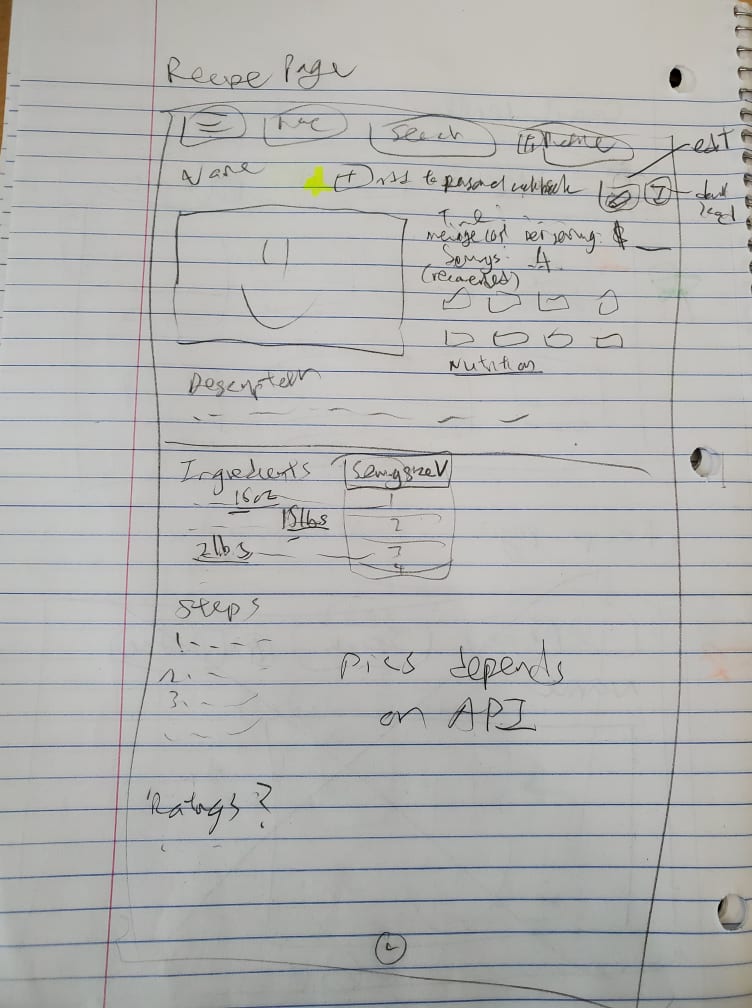 Recipe Page
Search
edit
Name
+ Add to personal cookbook
Time
average cost per serving: $ __
Servings: 4
(recommended)
Nutrition
Description
Ingredients
Serving size V
15oz
1
15lbs
2
2lbs
3
4
Steps
1.
2.
3.
Pics depends
on API
Ratings?